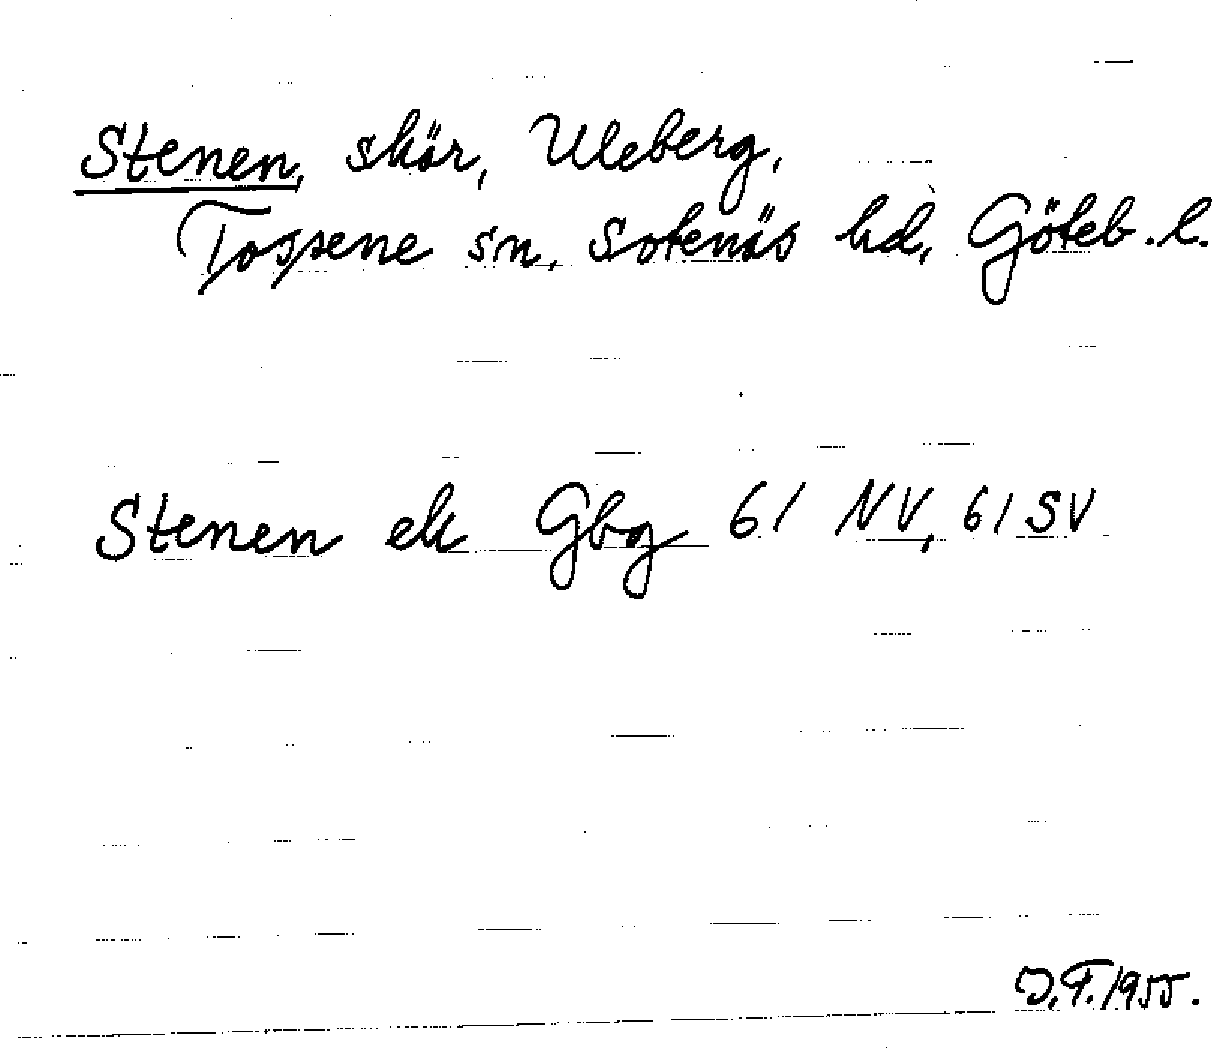 Stenen, skär, Uleberg,
Tossene sn, Sotenäs hd, Göteb. l.
Stenen ek Gbg 61 NV, 61 SV
J.F. 1955.